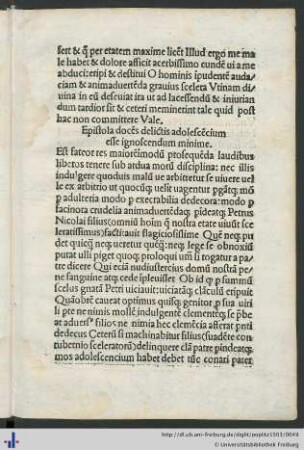 sert & q̃ per etatem maxime licet Illud ergo me ma
le habet & dolore afficit acerbissimo eundẽ ui a me
abduci: eripi & destitui O hominis ipudentẽ auda
ciam & animaduertẽda grauius scelera Vtinam di
uina in eũ deseuiat ira ut ad lacessendũ & iniurian
dum tardior sit & ceteri meminerint tale quid post
hac non committere Vale.
Epistola docẽs delictis adolescẽcium
esse ignoscendum minime.
Est fateor res maiorẽ modũ prosequẽda laudibus
liberos tenere sub ardua morũ disciplina: nec illis
indulgere quoduis malũ ue arbitretur se uiuere uel
le ex arbitrio ut quocũq; uelit uagentur
p adulteria modo p execrabilia dedecora: modo p
facinora crudelia animaduertẽda q; pideatq; Petrus
Nicolai filius (omniũ hoim q̃ nostra etate uiuũt sce
leratissimus) factitauit flagiciosissime Quẽ neq; pu
det quicq̃ neq; ueretur quẽq; neq; lege se obnoxiũ
putat ulli piget quoq; proloqui um̃ li rogatur a pa
tre dicere Qui eciã nudiustercius domũ nostrã pe
ne sanguine atq; cede ipleuisset Ob id q p summũ
scelus gnatã Petri uiciauit: uiciatq; clãculũ eripuit
Quãobrẽ caueat optimus quisq; genitor p sua uiri
li pte ne nimis mollẽ indulgentẽ clementẽq; se p̃be
at aduersꝰ filios ne nimia hec clemẽcia afferat pnti
dedecus Ceterũ si machinabitur filius (suadẽte con
tubernio sceleratorũ) delinquere clãm patre pindeatq;
mos adolescencium habet debet tũc conari pater
http://dl.ub.uni-freiburg.de/diglit/poplitz1503/0049
© Universitätsbibliothek Freiburg